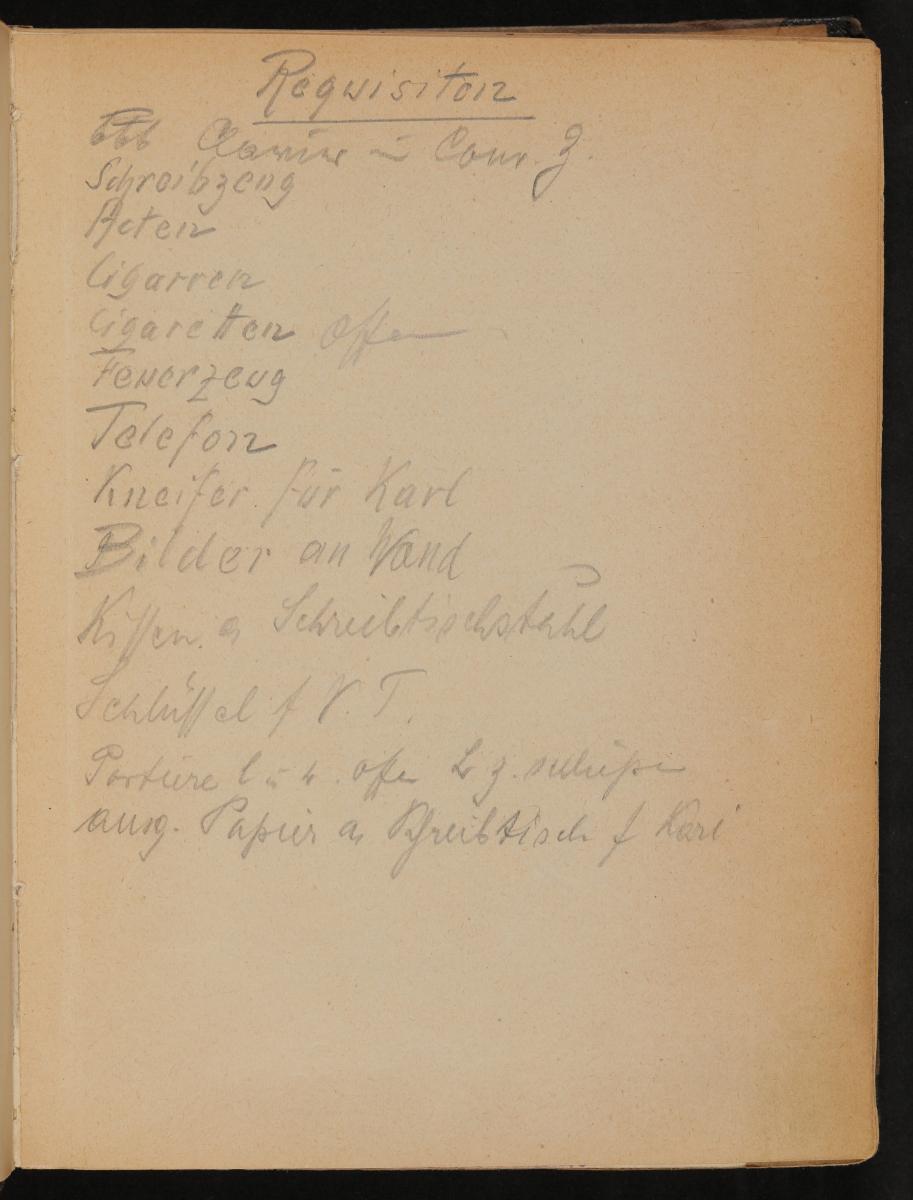 Requisiten
Clavier in Cour. Z.
Schreibzeug
Acten
Cigarren
Cigaretten offen
Feuerzeug
Telefon
Kneifer für Karl
Bilder an Wand
Kissen a Schreibtischstuhl
Schlüssel f V. T.
Portiere l u r. offen L z. schließen
ausg. Papier a Schreibtisch f Karl